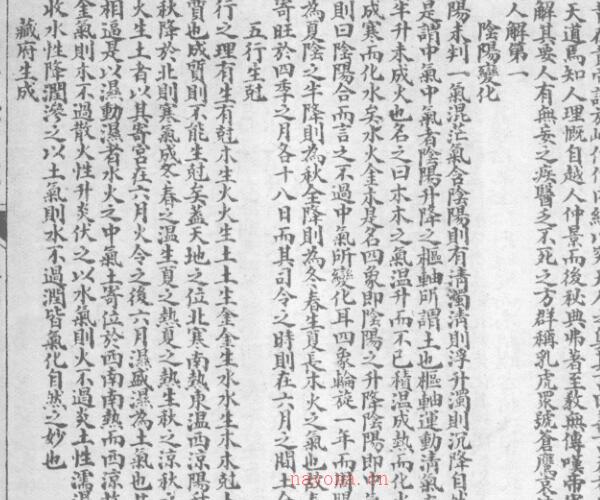 天道焉知人理慨自越人仲景而後秋典弗著至教無傳嘆帝
解其要人有無妄之疾醫乏不死之方群稱乳虎眾號蒼鷹哀
人解第一
陰陽變化
陽未判一氣混茫氣含陰陽則有清濁清則浮升濁則沉降自
是謂中氣中氣者陰陽升降之樞軸所謂土也樞軸運動清氣
半升未成火也名之曰木木之氣溫升而不已積溫成熱而化
成寒而化水矣水火金木是名四象即陰陽之升降陰陽即
則曰陰陽合而言之不過中氣所變化耳四象輪旋一年而
為夏陰之半降則為秋全降則為冬春生夏長木火之氣也故
寄旺於四季之月各十八日而其司令之時則在六月之間土合
五行生尅
行之理有生有尅木生火火生土土生金金生水水生木木尅土
質也成質則不能生尅矣蓋天地之位北寒南熱東溫西涼陽
秋降於北則寒氣成冬春之溫生夏之熱夏之熱生秋之涼秋
火生土者以其寄宮在六月火令之後六月濕盛濕為土氣也其
相逼是以濕動濕者水火之中氣土寄位於西南南熱而西涼故
金氣則木不過散火性升炎伏之以水氣則火不過炎土性濡濕
收水性降潤滲之以土氣則水不過潤皆氣化自然之妙也
藏府生成
nayona.cn